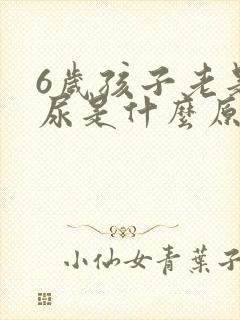 6歲孩子老是
尿是什麼原
小仙女青葉子